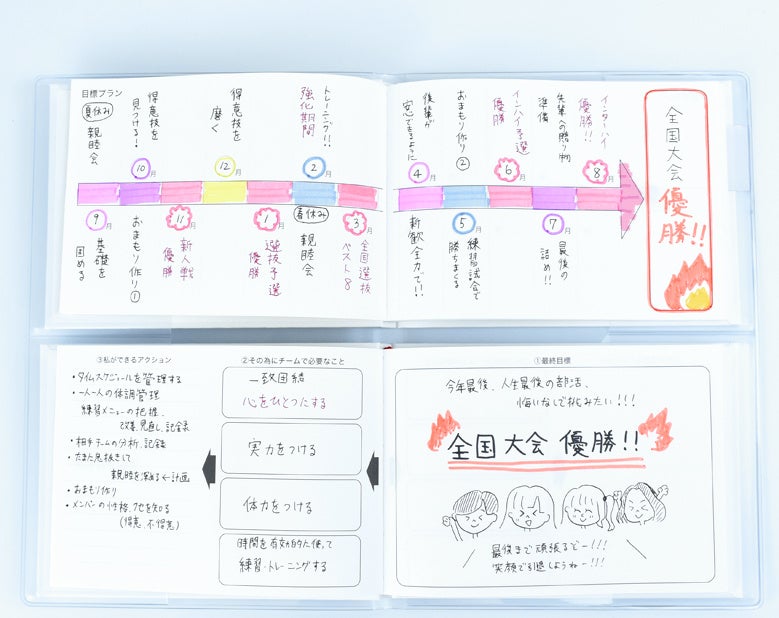 目標プラン
夏休み
親睦会
9月
基礎を
固める
得意技を
見つける!
10月
おまもり作り①
11月
新人戦
優勝
得意技を
磨く
12月
1月
選抜予選
優勝
トレーニング!!
強化期間
2月
春休み
親睦会
3月
全国選抜
ベスト8
後輩が
安心できるように
4月
新歓全力で!!
おまもり作り②
5月
練習試合で
勝ちまくる
インハイ予選
優勝
6月
先輩への贈り物
準備
7月
最後の
詰め!!
インターハイ
優勝!!
8月
全国大会
優勝!!
③私ができるアクション
・タイムスケジュールを管理する
・一人一人の体調管理
練習メニューの把握、
改善、見直し、記録
・相手チームの分析、記録
・たまた息抜きして
親睦を深める←計画
・おまもり作り
・メンバーの性格、クセを知る
(得意、不得意)
②その為にチームで必要なこと
一致団結
心をひとつにする
実力をつける
体力をつける
時間を有効的に使って
練習・トレーニングする
①最終目標
今年最後、人生最後の部活、
悔いなしで挑みたい!!!
全国大会 優勝!!
最後まで頑張るぞー!!!
笑顔で引退しようねー!!!